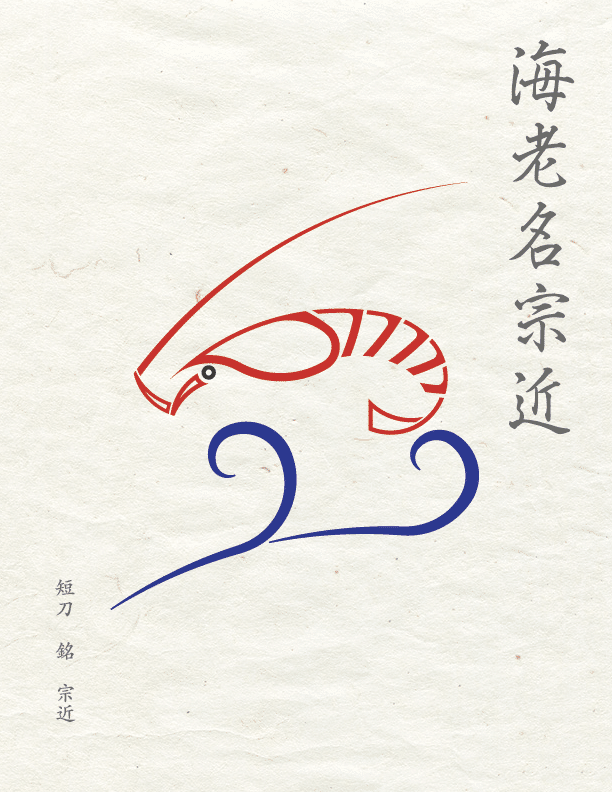 海老名宗近
短刀 銘 宗近